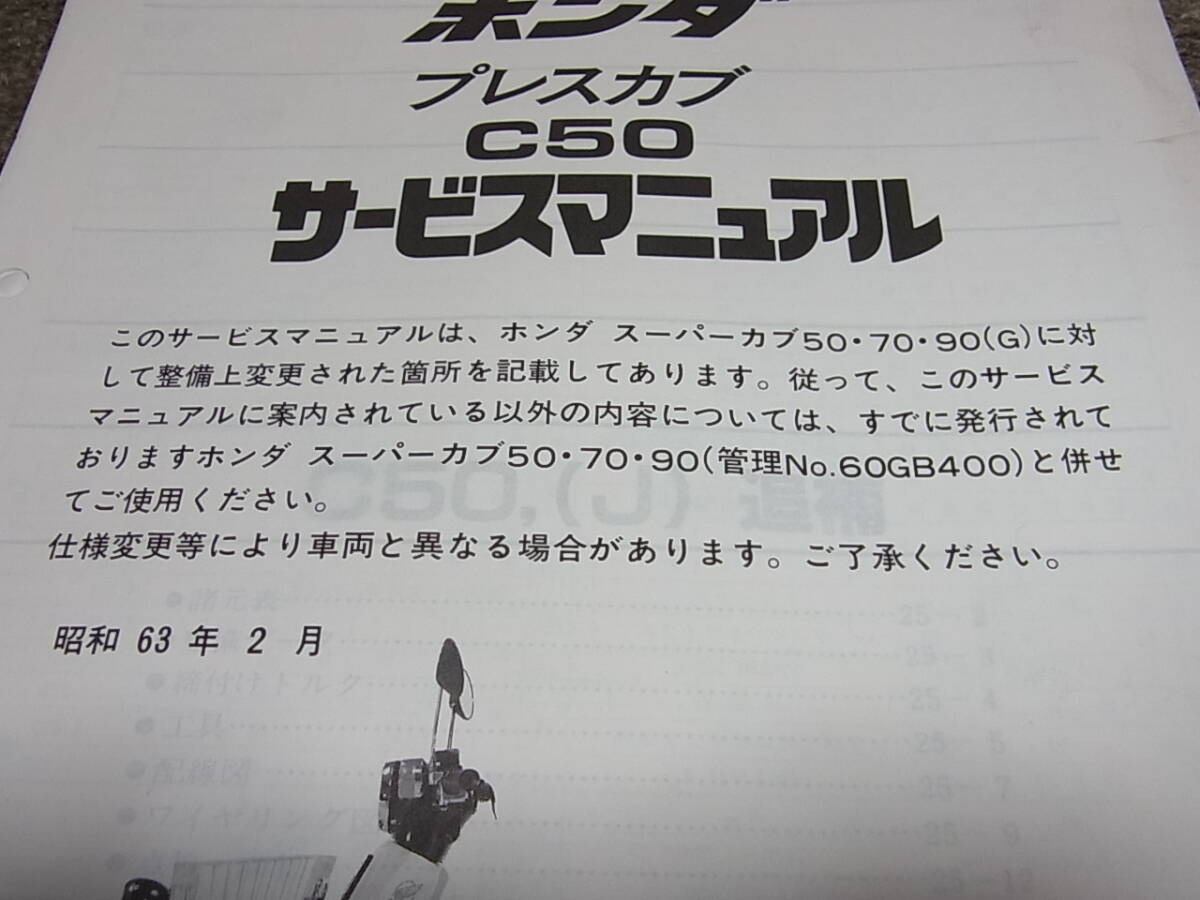 ホンダ
プレスカブ
C50
サービスマニュアル
このサービスマニュアルは、ホンダ スーパーカブ50・70・90(G)に対
して整備上変更された箇所を記載してあります。従って、このサービス
マニュアルに案内されている以外の内容については、すでに発行されて
おりますホンダ スーパーカブ50・70・90(管理No.60GB400)と併せ
てご使用ください。
仕様変更等により車両と異なる場合があります。ご了承ください。
C50,(J) 追補
●諸元表 25-2
25-3
●締付けトルク 25-4
●工具 25-5
●配線図 25-7
●ワイヤリング図 25-9
25-12
昭和 63 年 2 月